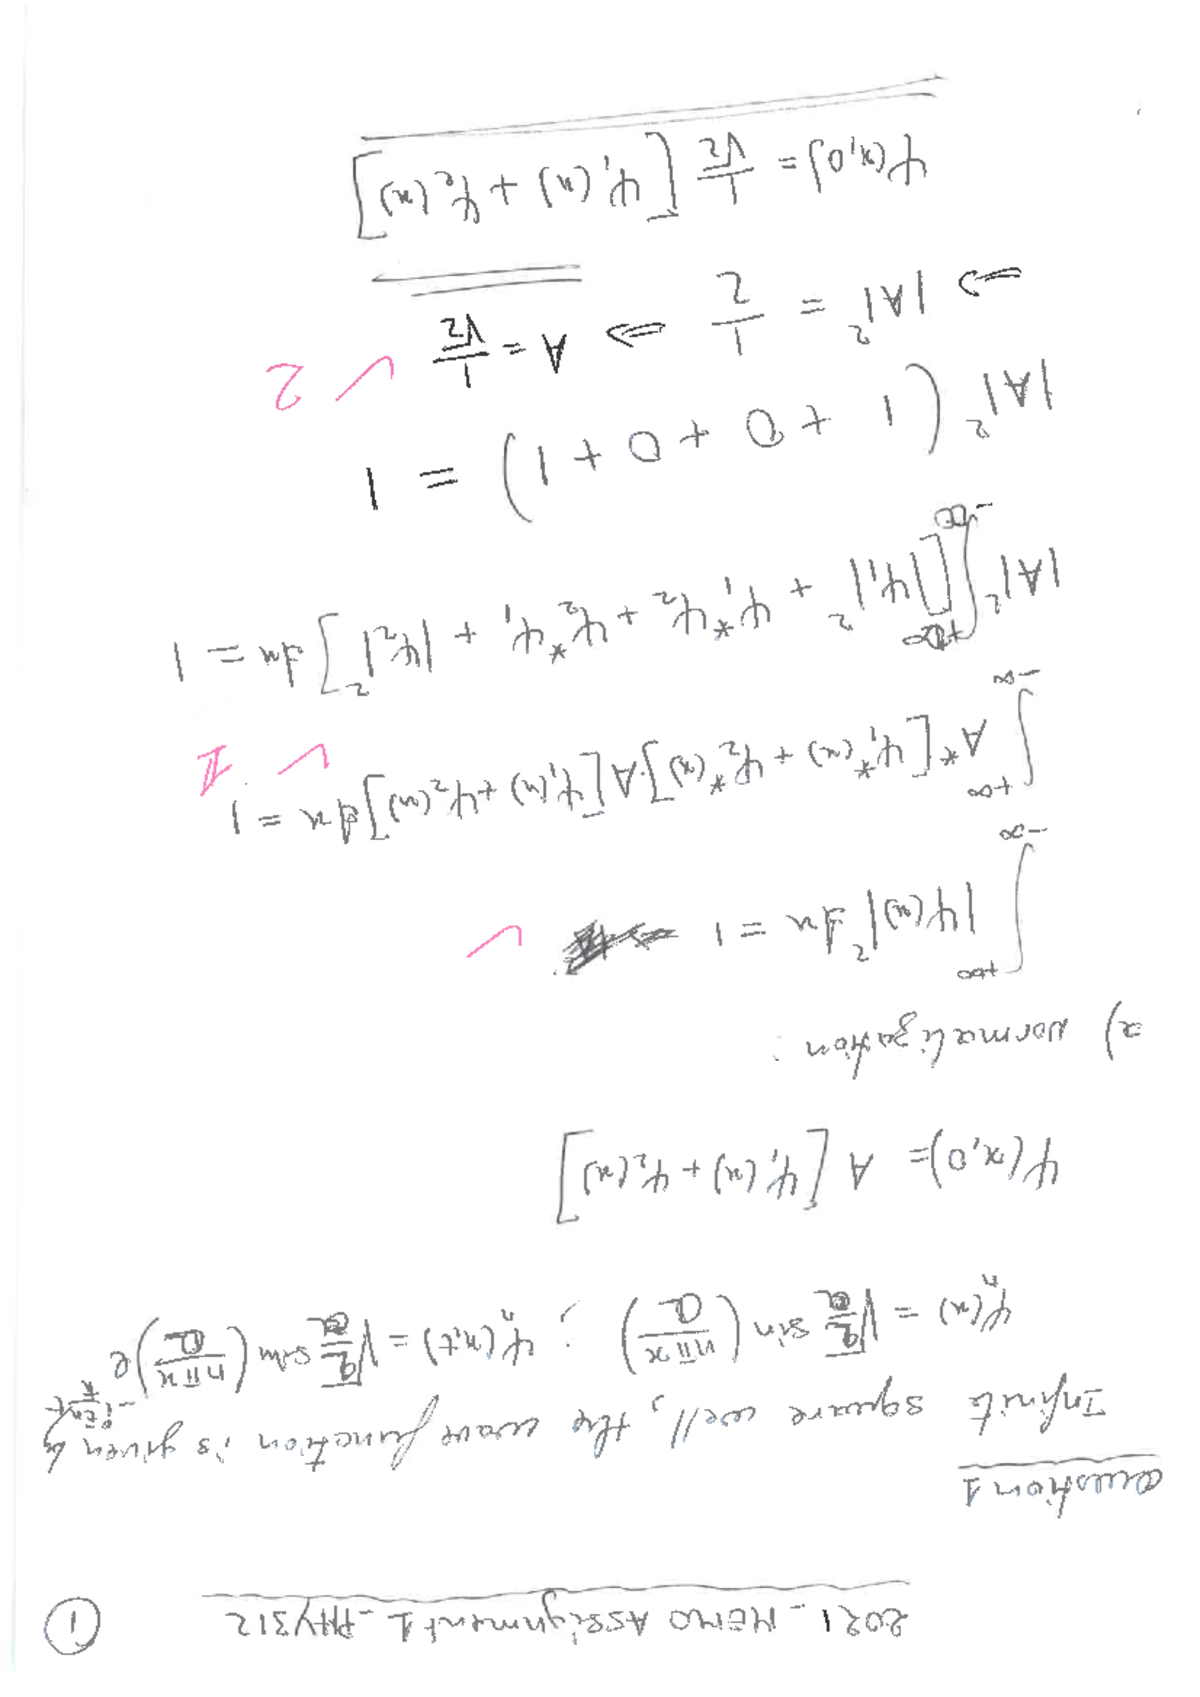 2021 - MEMO ASSignment 1 - PHY312
1
Question 1
Infinite square well, the wave function is given by
ψₙ(x) = √(2/a) sin(nπx/a) ; ψₙ(x,t) = √(2/a) sin(nπx/a) e^(-i Eₙ/ħ t)
ψ(x,0) = A [ψ₁(x) + ψ₂(x)]
a) Normalization :
∫_{-∞}^{+∞} |ψ(x)|² dx = 1 ✓
∫_{-∞}^{+∞} A* [ψ₁*(x) + ψ₂*(x)] A [ψ₁(x) + ψ₂(x)] dx = 1 ✓ 1
|A|² ∫_{-∞}^{+∞} [|ψ₁|² + ψ₁*ψ₂ + ψ₂*ψ₁ + |ψ₂|²] dx = 1
|A|² (1 + 0 + 0 + 1) = 1
⇒ |A|² = 1/2 ⇒ A = 1/√2 ✓ 2
ψ(x,0) = 1/√2 [ψ₁(x) + ψ₂(x)]